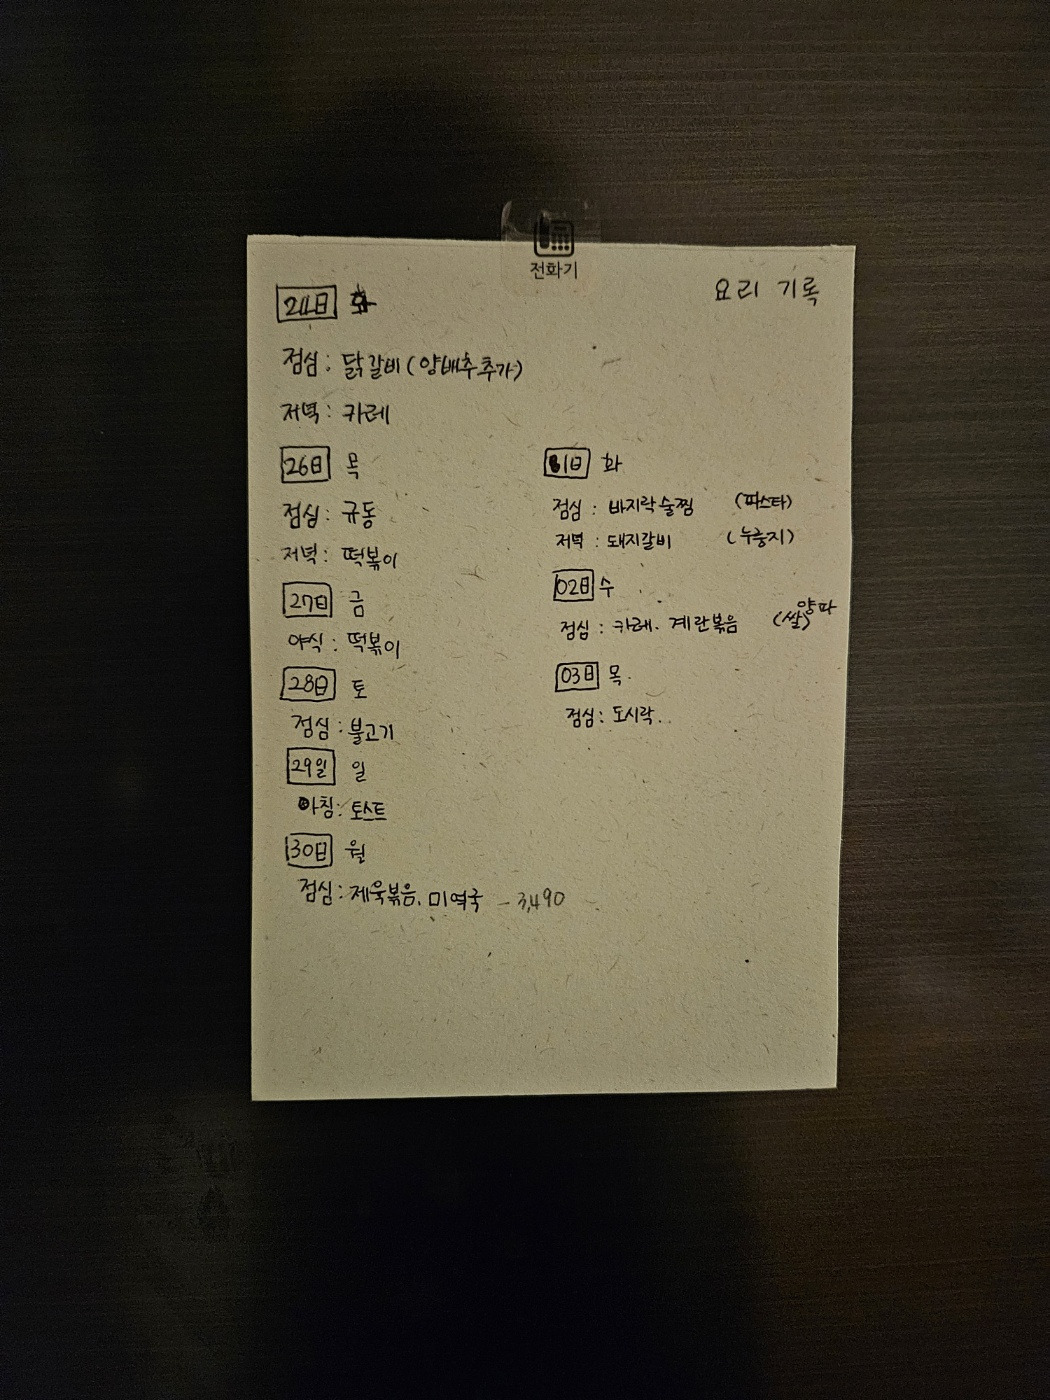 전화기
요리 기록
24日 화
점심 : 닭갈비 (양배추추가)
저녁 : 카레
26日 목
점심 : 규동
저녁 : 떡볶이
27日 금
야식 : 떡볶이
28日 토
점심 : 불고기
29일 일
아침 : 토스트
30日 월
점심 : 제육볶음. 미역국 - 3,490
1日 화
점심 : 바지락술찜 (파스타)
저녁 : 돼지갈비 (누룽지)
02日 수
점심 : 카레. 계란볶음 (쌀) 양파
03日 목.
점심 : 도시락..